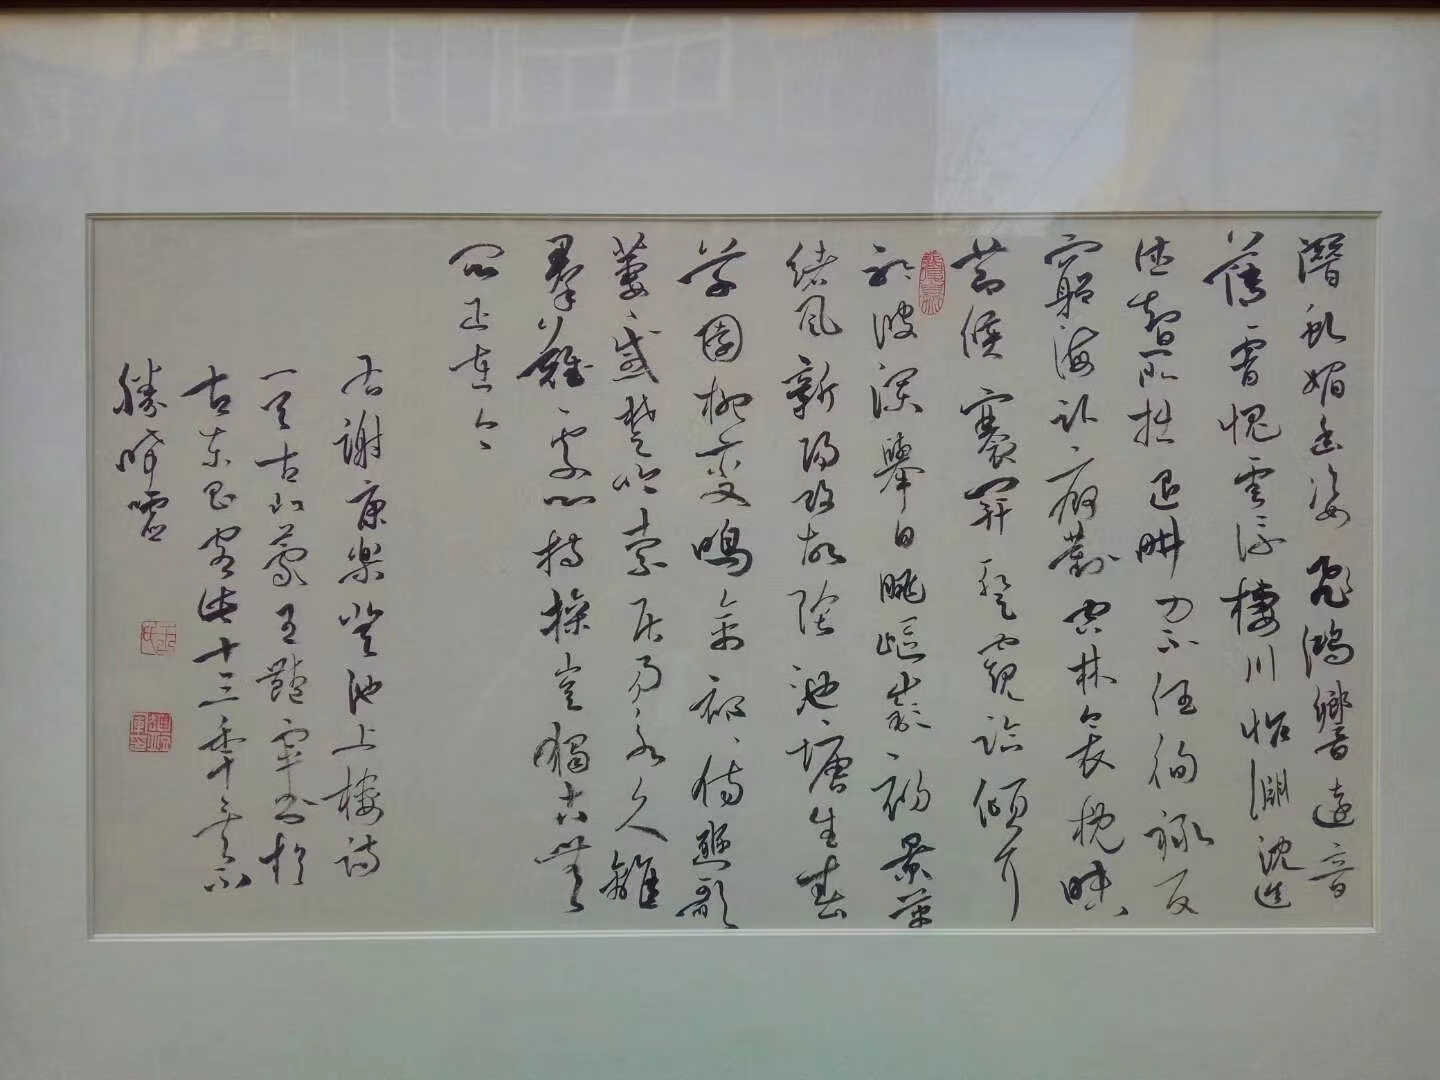 潛虬媚幽姿飛鴻響遠音
薄霄愧雲浮棲川怍淵沈進
德智所拙退耕力不任徇祿反
窮海臥痾對空林衾枕昧
節候褰開暫窺臨傾耳
聆波舉目眺嶇嶔初景革
緒風新陽改故陰池塘生春
草園柳變鳴禽祁祁傷豳歌
萋萋感楚吟索居易永久離
羣難處心持操豈獨古無
悶徵在今
右謝康樂登池上樓詩
一首古王書於
古東十三年
勝